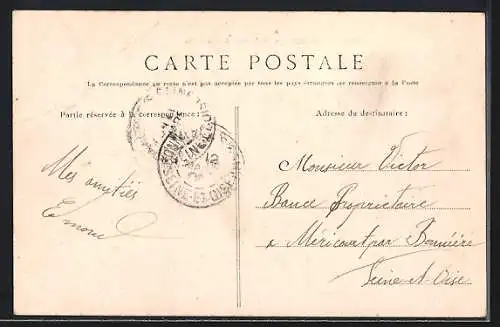 CARTE POSTALE
La Correspondance au recto n'est pas acceptée par tous les pays étrangers se renseigner à la Poste
Partie réservée à la correspondance :
Adresse du destinataire :
Mes amitiés
Monsieur Victor
Propriétaire
à Méricourt par Bonnière
Seine-et-Oise